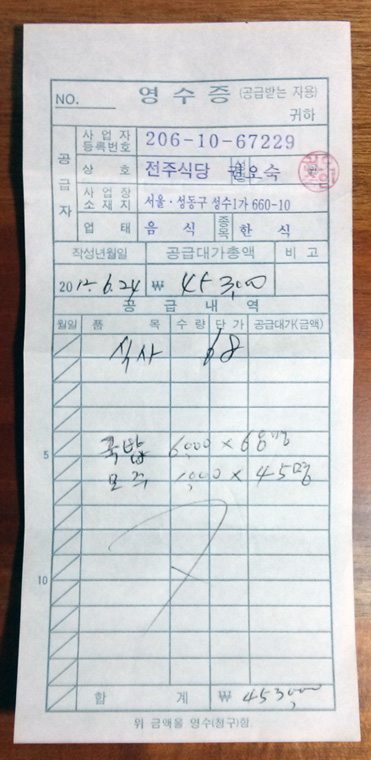 NO. 영수증 (공급받는 자용)
귀하
공급자
사업자등록번호 206-10-67229
상호 전주식당 오숙
사업장소재지 서울·성동구 성수1가 660-10
업태 음식 종목 한식
작성년월일 공급대가총액 비고
2012. 6. 24 ₩ 453,00
공급내역
월일 품목 수량 단가 공급대가(금액)
식사 68
5 국밥 6000 × 68명
모주 1,000 × 45명
10
합계 ₩ 453,000
위 금액을 영수(청구)함.